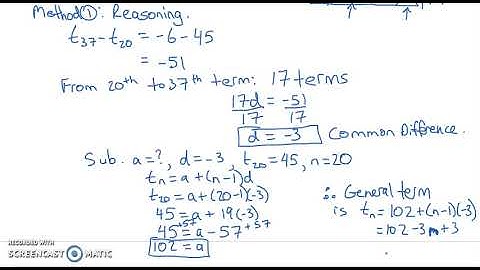 Method①: Reasoning.
t₃₇ - t₂₀ = -6 - 45
= -51
From 20th to 37th term: 17 terms
17d = -51
17 17
d = -3 Common Difference.
Sub. a=?, d=-3, t₂₀=45, n=20
tₙ = a+(n-1)d
t₂₀ = a+(20-1)(-3)
45 = a + 19(-3)
+57
45 = a - 57 +57
102 = a
∴ General term
is tₙ = 102+(n-1)(-3)
= 102-3n+3
RECORDED WITH
SCREENCAST MATIC